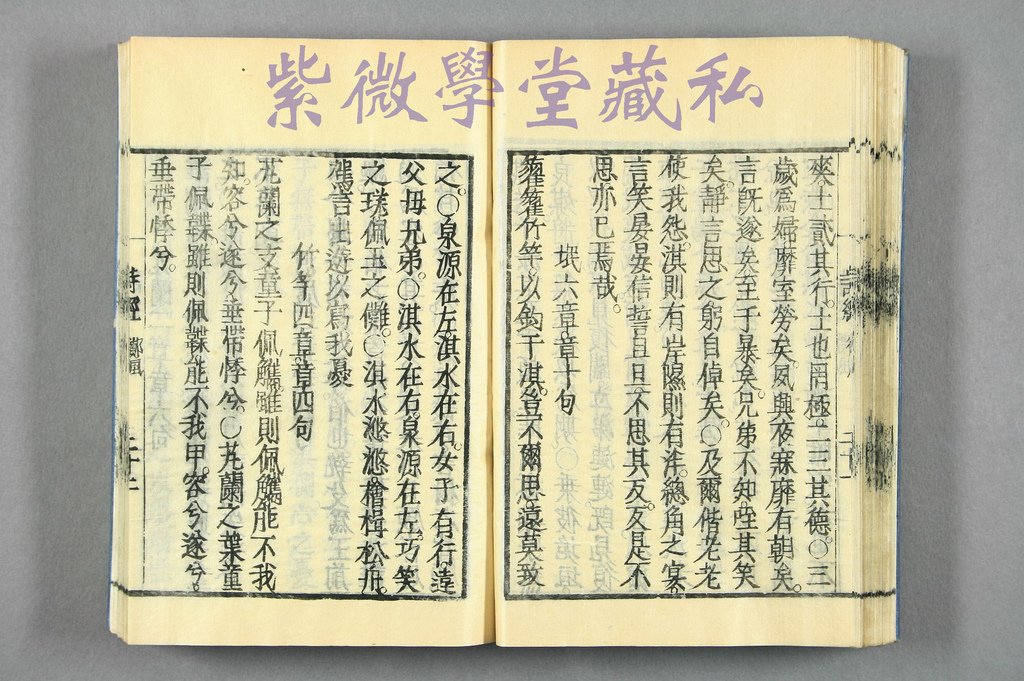 紫微學堂藏私
爽。士貳其行。士也罔極。二三其德。〇三
歲爲婦靡室勞矣夙興夜寐靡有朝矣。
言旣遂矣至于暴矣。兄弟不知咥其笑
矣。靜言思之。躬自悼矣。〇及爾偕老老
使我怨。淇則有岸隰則有泮。總角之宴
言笑晏晏信誓旦旦。不思其反。反是不
思亦巳焉哉。
氓六章。章十句
籊籊竹竿。以釣于淇。豈不爾思。遠莫致
之。〇泉源在左淇水在右。女子有行遠
父母兄弟。〇淇水在右。泉源在左。巧笑
之瑳佩玉之儺。〇淇水滺滺檜楫松舟。
駕言出遊以寫我憂
竹竿四章。章四句
芄蘭之支童子佩觿。雖則佩觿能不我
知。容兮遂兮垂帶悸兮。〇芄蘭之葉童
子佩韘。雖則佩韘能不我甲。容兮遂兮。
垂帶悸兮。
詩經 風 二十二